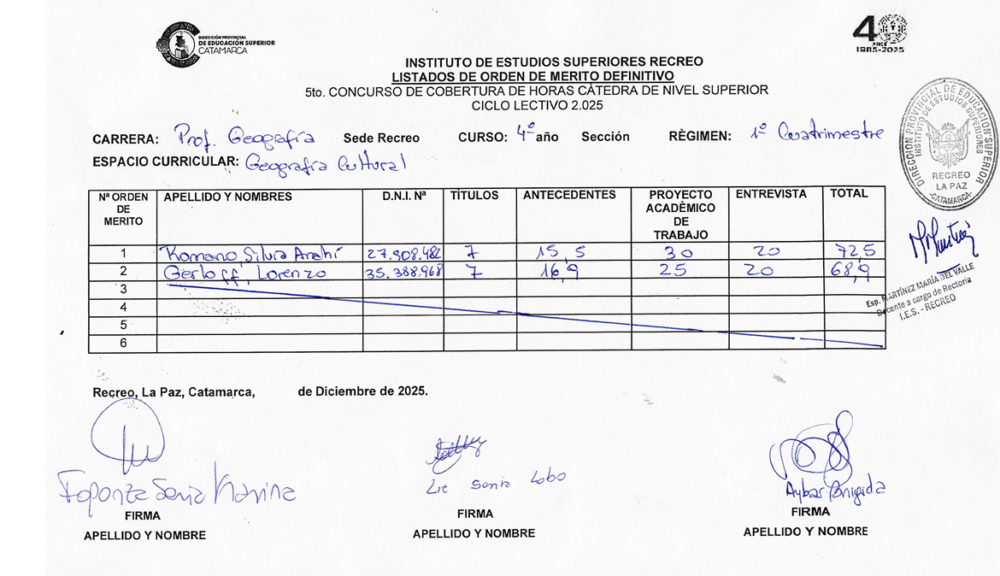 DIRECCIÓN PROVINCIAL
DE EDUCACIÓN SUPERIOR
CATAMARCA
40
AÑOS
1985-2025
INSTITUTO DE ESTUDIOS SUPERIORES RECREO
LISTADOS DE ORDEN DE MERITO DEFINITIVO
5to. CONCURSO DE COBERTURA DE HORAS CÀTEDRA DE NIVEL SUPERIOR
CICLO LECTIVO 2.025
CARRERA: Prof. Geografía Sede Recreo CURSO: 4º año Sección RÈGIMEN: 1º Cuatrimestre
ESPACIO CURRICULAR: Geografía Cultural
DIRECCION PROVINCIAL DE EDUCACION SUPERIOR
INSTITUTO DE ESTUDIOS SUPERIORES
RECREO
LA PAZ
-CATAMARCA-
Nª ORDEN DE MERITO APELLIDO Y NOMBRES D.N.I. Nª TÌTULOS ANTECEDENTES PROYECTO ACADÈMICO DE TRABAJO ENTREVISTA TOTAL
1 Romano Silvia Anahí 27.908.482 7 15,5 30 20 72,5
2 Gerloff, Lorenzo 35.388.968 7 16,9 25 20 68,9
3
4
5
6
Esp. MARTÍNEZ MARÍA DEL VALLE
Docente a cargo de Rectoría
I.E.S. - RECREO
Recreo, La Paz, Catamarca, de Diciembre de 2025.
Sonia Karina
Lic Sonia Lobo
Aybar Brigida
FIRMA FIRMA FIRMA
APELLIDO Y NOMBRE APELLIDO Y NOMBRE APELLIDO Y NOMBRE